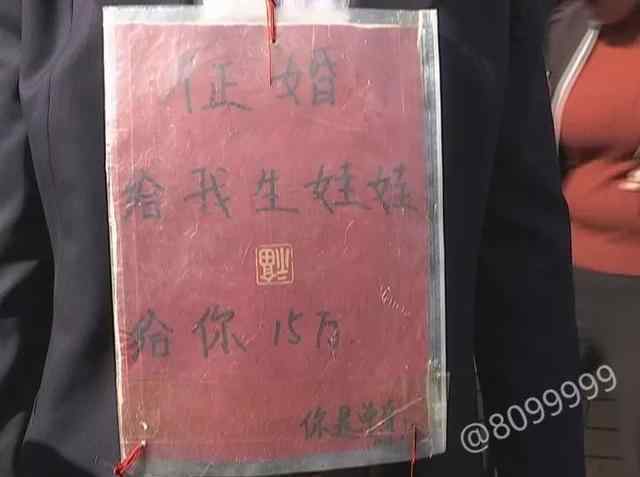 征婚
给我生娃娃
给你15万
你是单身
@8099999